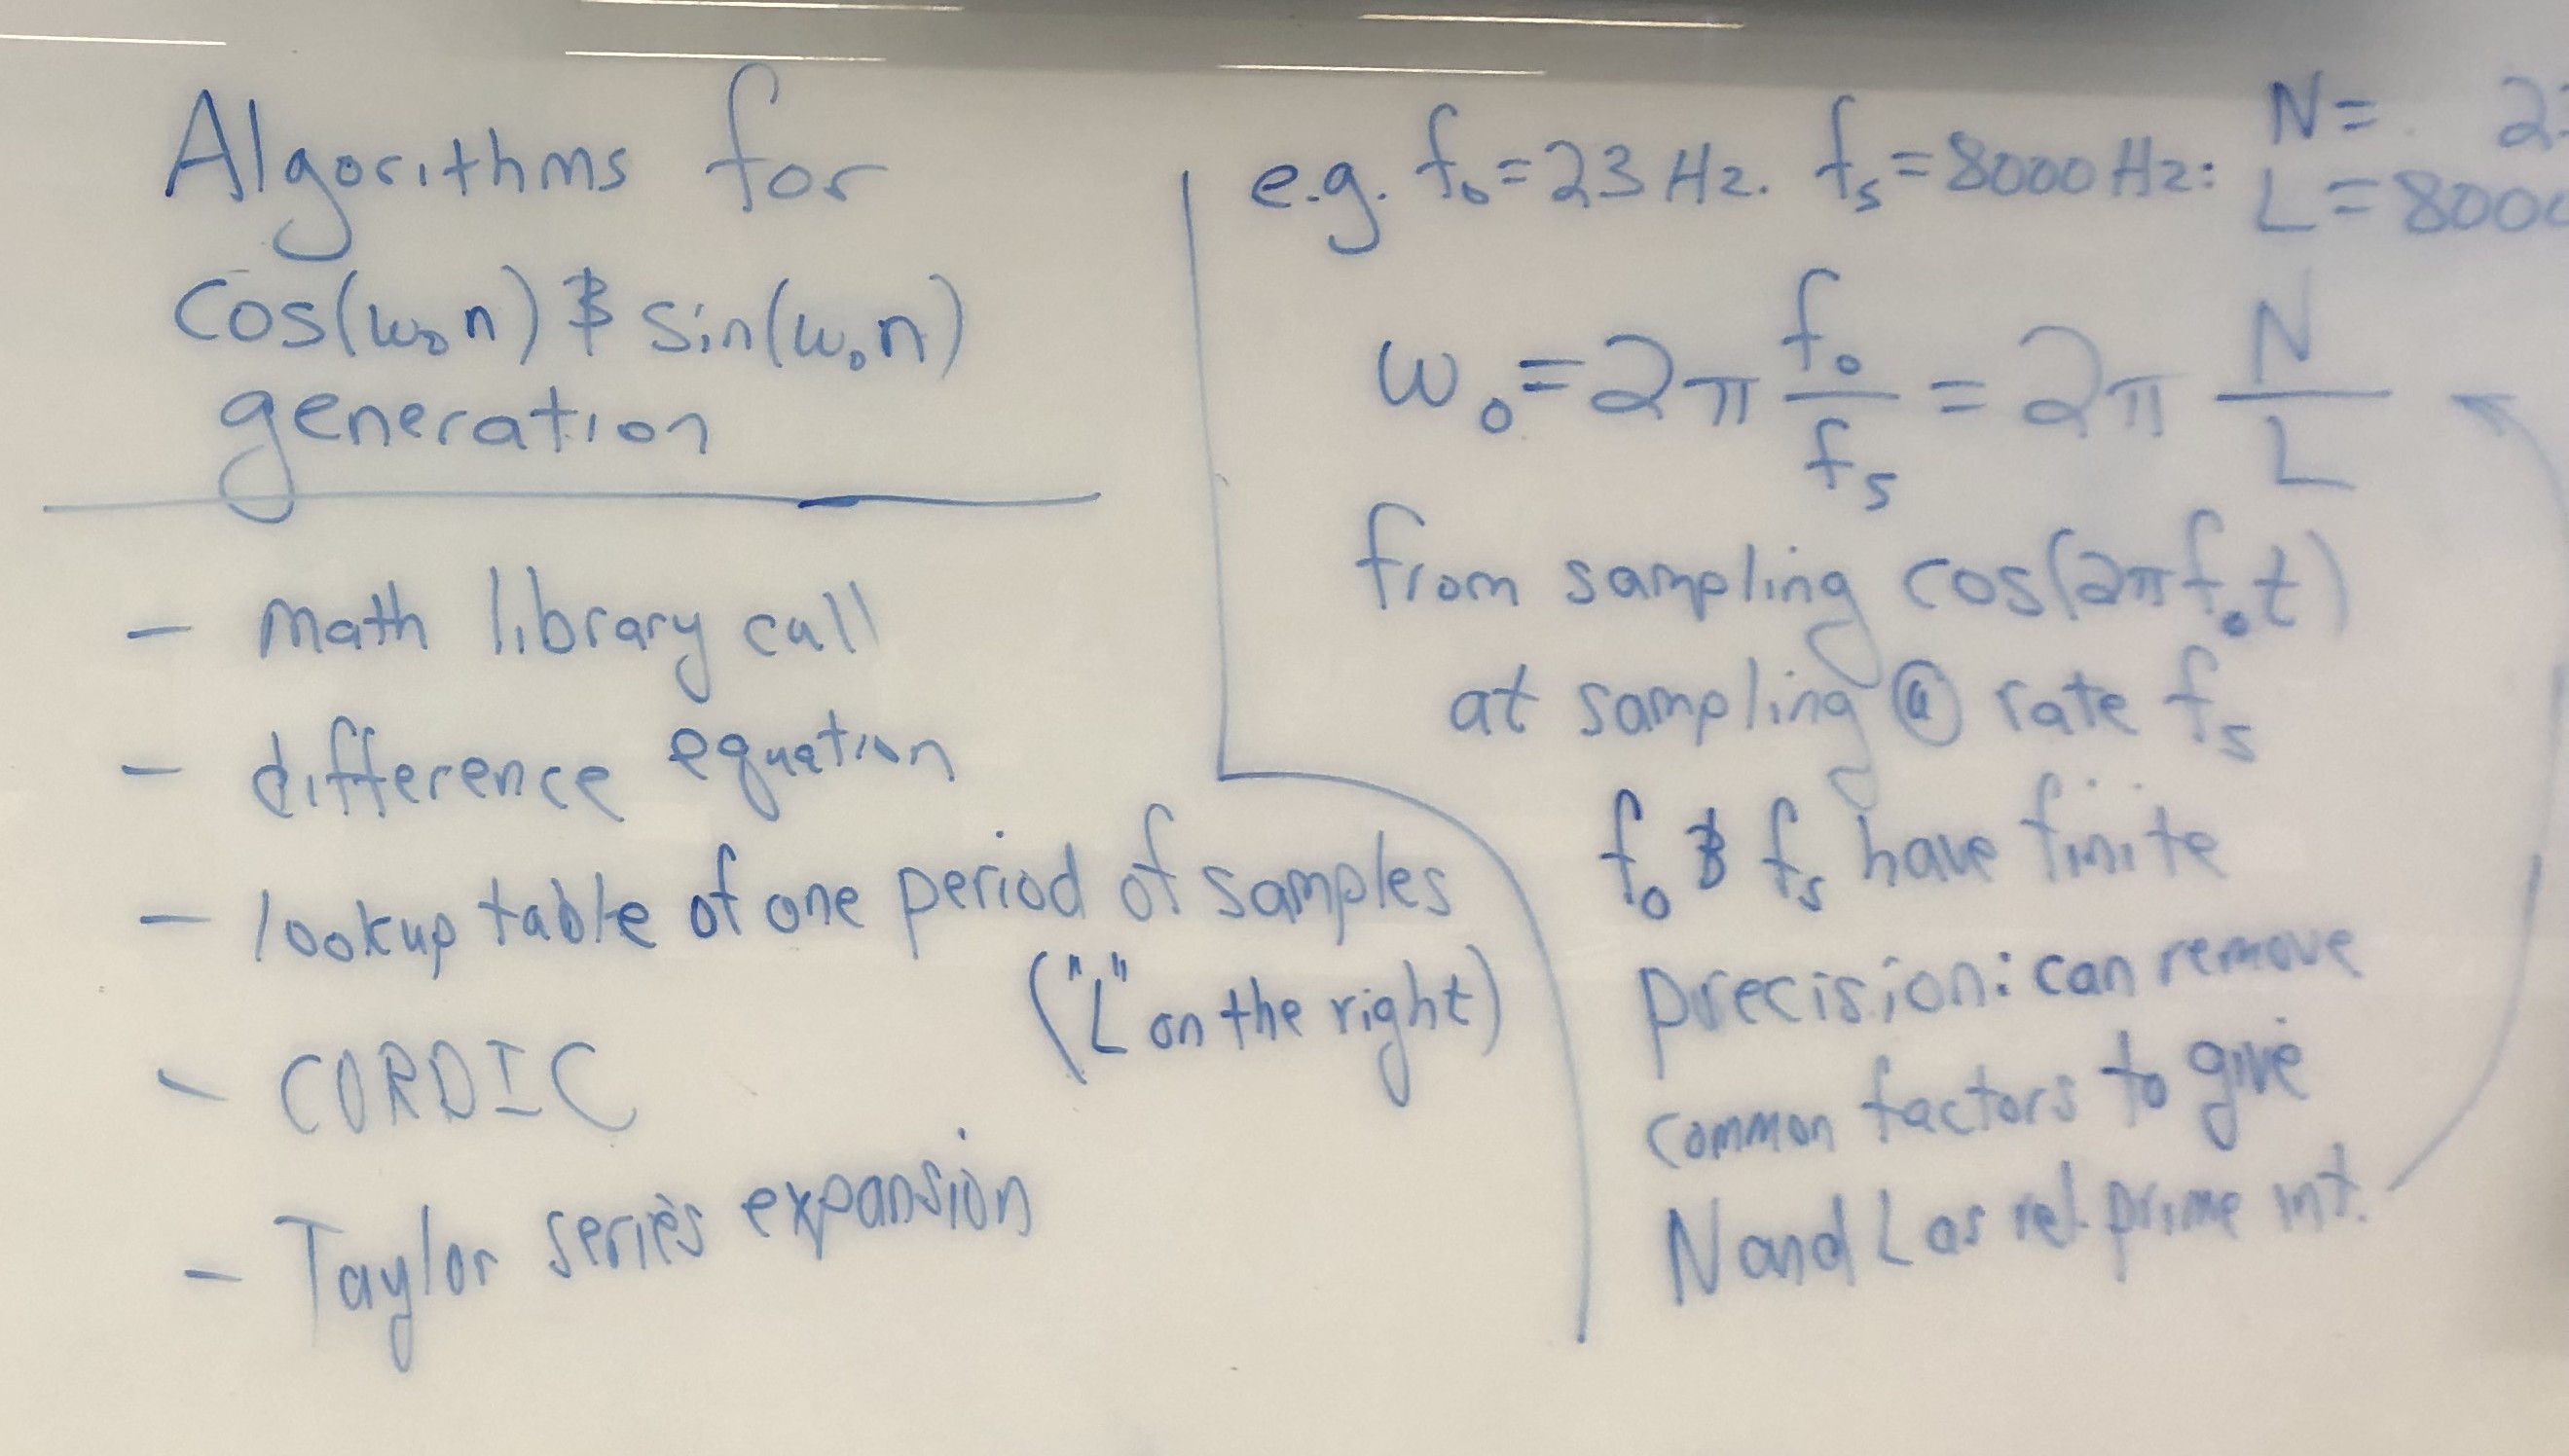 Algorithms for
cos(ω₀n) & sin(ω₀n)
generation
- math library call
- difference equation
- lookup table of one period of samples
("L" on the right)
- CORDIC
- Taylor series expansion
e.g. f₀=23 Hz. fₛ=8000 Hz:
N= 2
L=800
ω₀=2π f₀/fₛ = 2π N/L
from sampling cos(2πf₀t)
at sampling @ rate fₛ
f₀ & fₛ have finite
precision: can remove
common factors to give
N and L as rel. prime int.